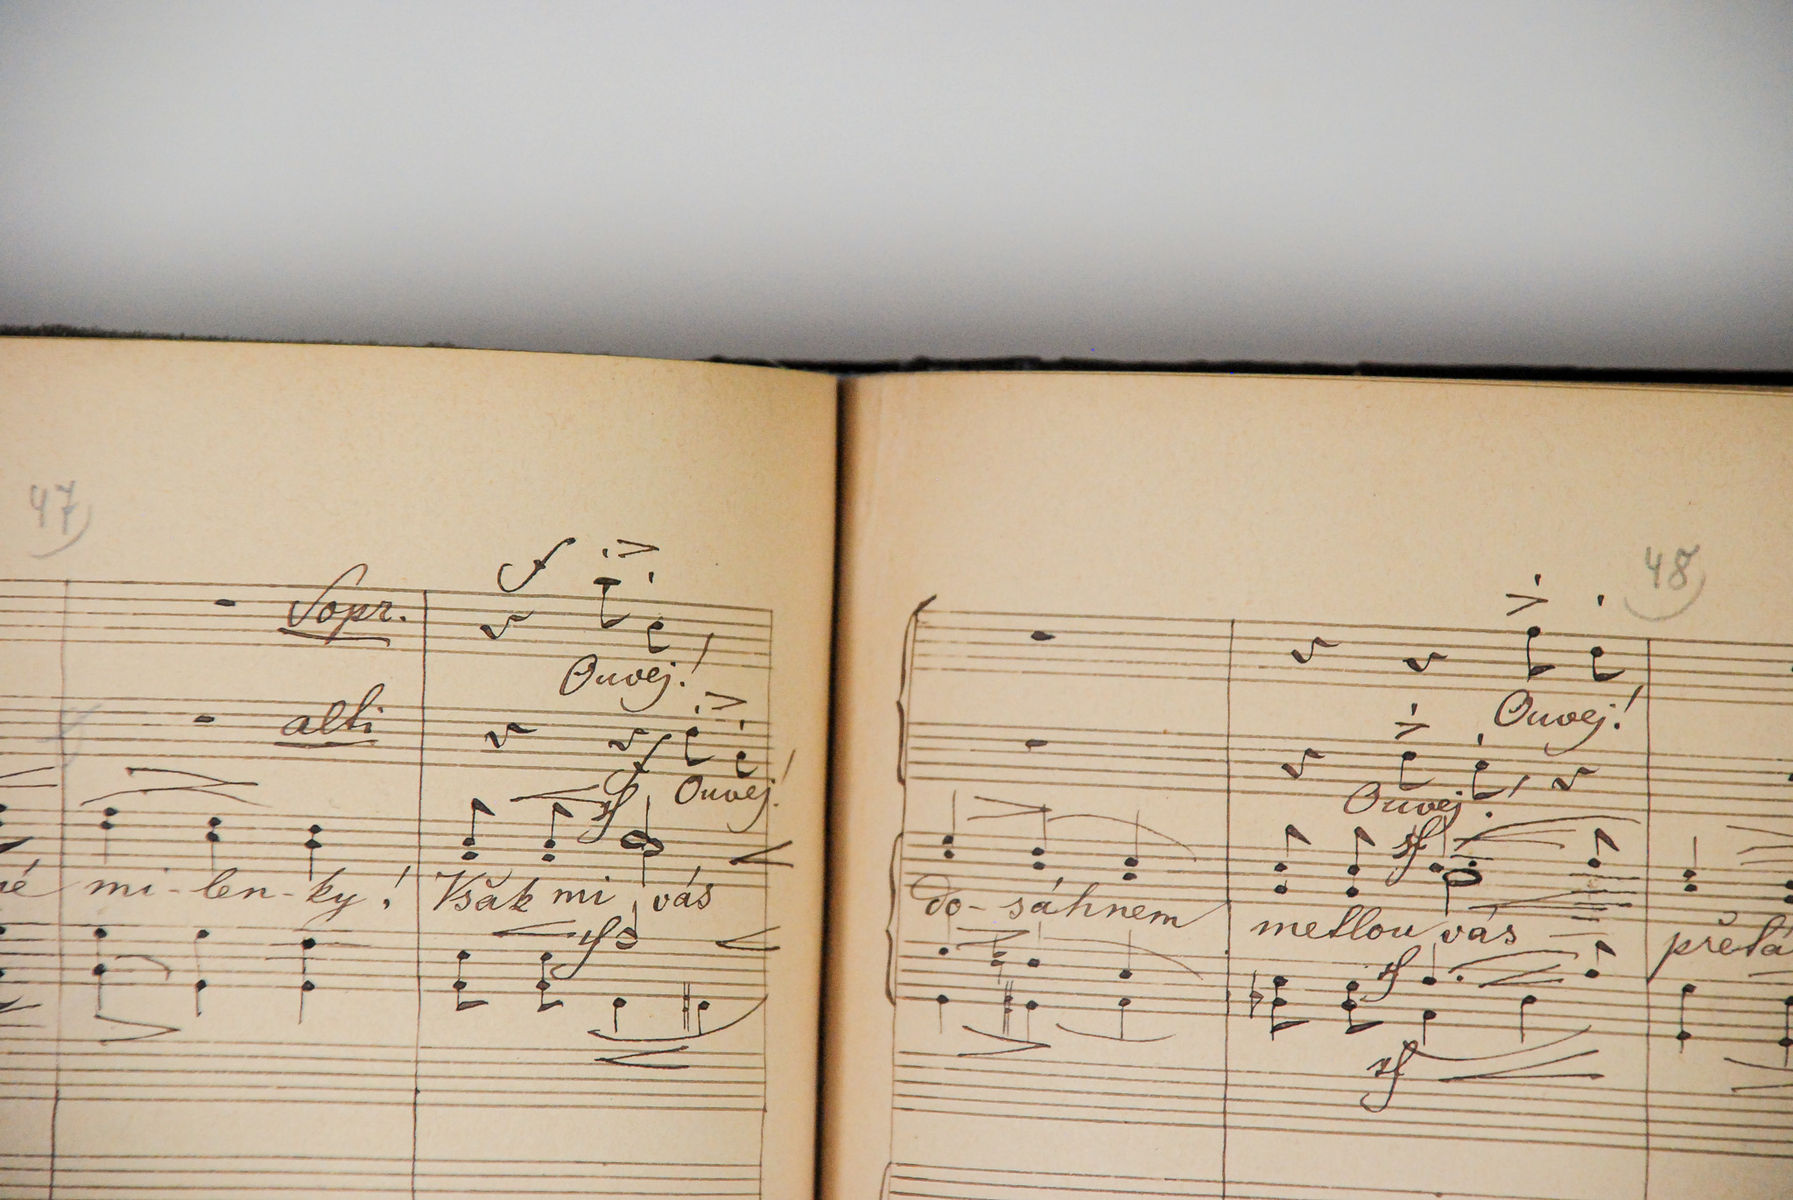 47
f
Sopr.
Ouvej!
alti
f
Ouvej!
sf
mi-len-ky! Však mi vás
sf
48
Ouvej!
Ouvej!
sf
do-sáhnem metlou vás
sf
sf